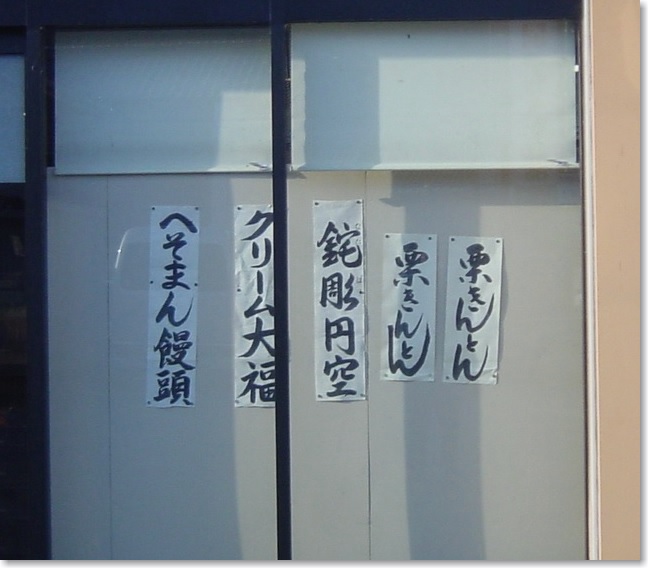 栗きんとん
栗きんとん
鉈彫円空
クリーム大福
へそまん饅頭